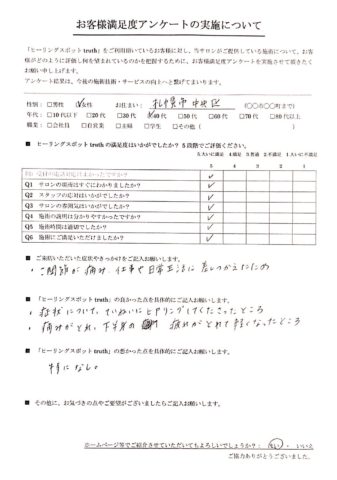 お客様満足度アンケートの実施について
「ヒーリングスポットtruth」をご利用頂いているお客様に対し、当サロンがご提供している施術について、お客
様がどのように評価し何を望まれているのかを把握するために、お客様満足度アンケートを実施させて頂きたく
お願い申し上げます。
アンケート結果は、今後の施術技術・サービスの向上へと繋げてまいります。
性別：□男性 女性 お住まい：札幌市中央区 （〇〇市〇〇町まで）
年代：□10代以下 □20代 □30代 40代 □50代 □60代 □70代 □80代以上
職業：□会社員 □自営業 □主婦 □学生 □その他（ ）
■ ヒーリングスポットtruthの満足度はいかがでしたか？ 5段階でご評価ください。
5.大いに満足 4.満足 3.普通 2.不満足 1.大いに不満足
5 4 3 2 1
例）受付の電話対応はよかったですか？ ✓
Q1 サロンの場所はすぐにわかりましたか？ ✓
Q2 スタッフの応対はいかがでしたか？ ✓
Q3 サロンの雰囲気はいかがでしたか？ ✓
Q4 施術の説明は分かりやすかったですか？ ✓
Q5 施術時間は適切でしたか？ ✓
Q6 施術にご満足いただけましたか？ ✓
■ ご来店いただいた症状やきっかけをご記入お願いします。
・関節が痛み、仕事や日常生活に差しつかえたため
■ 「ヒーリングスポットtruth」の良かった点を具体的にご記入お願いします。
・症状について、ていねいにヒヤリングしてくださったところ
・痛みがとれ、下半身の 疲れがとれて軽くなったところ
■ 「ヒーリングスポットtruth」の悪かった点を具体的にご記入お願いします。
特になし。
■ その他に、お気づきの点やご要望がございましたらご記入お願いします。
ホームページ等でご紹介させていただいてもよろしいでしょうか？： はい ・ いいえ
ご協力ありがとうございました。